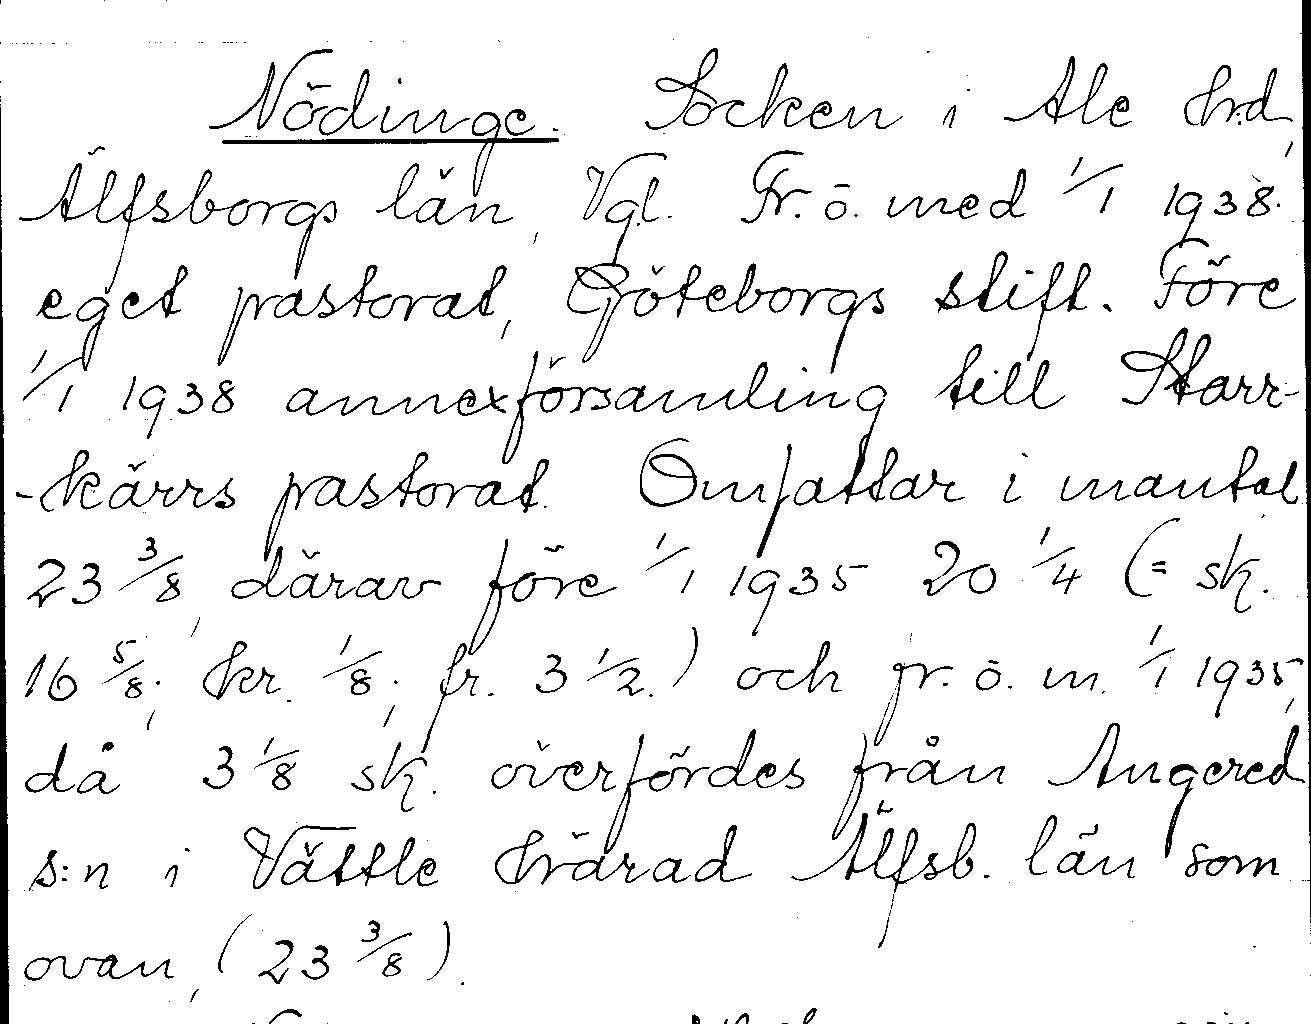 Nödinge. Socken i Ale hrd,
Älfsborgs län, Vgl. Fr. o. med 1/1 1938.
eget pastorat, Göteborgs stift. Före
1/1 1938 annexförsamling till Starr-
-kärrs pastorat. Omfattar i mantal
23 3/8, därav före 1/1 1935 20 1/4 (= sk.
16 5/8; kr. 1/8; fr. 3 1/2.) och fr. o. m. 1/1 1935,
då 3 1/8 sk. överfördes från Angered
s:n i Vättle härad Älfsb. län som
ovan, (23 3/8).